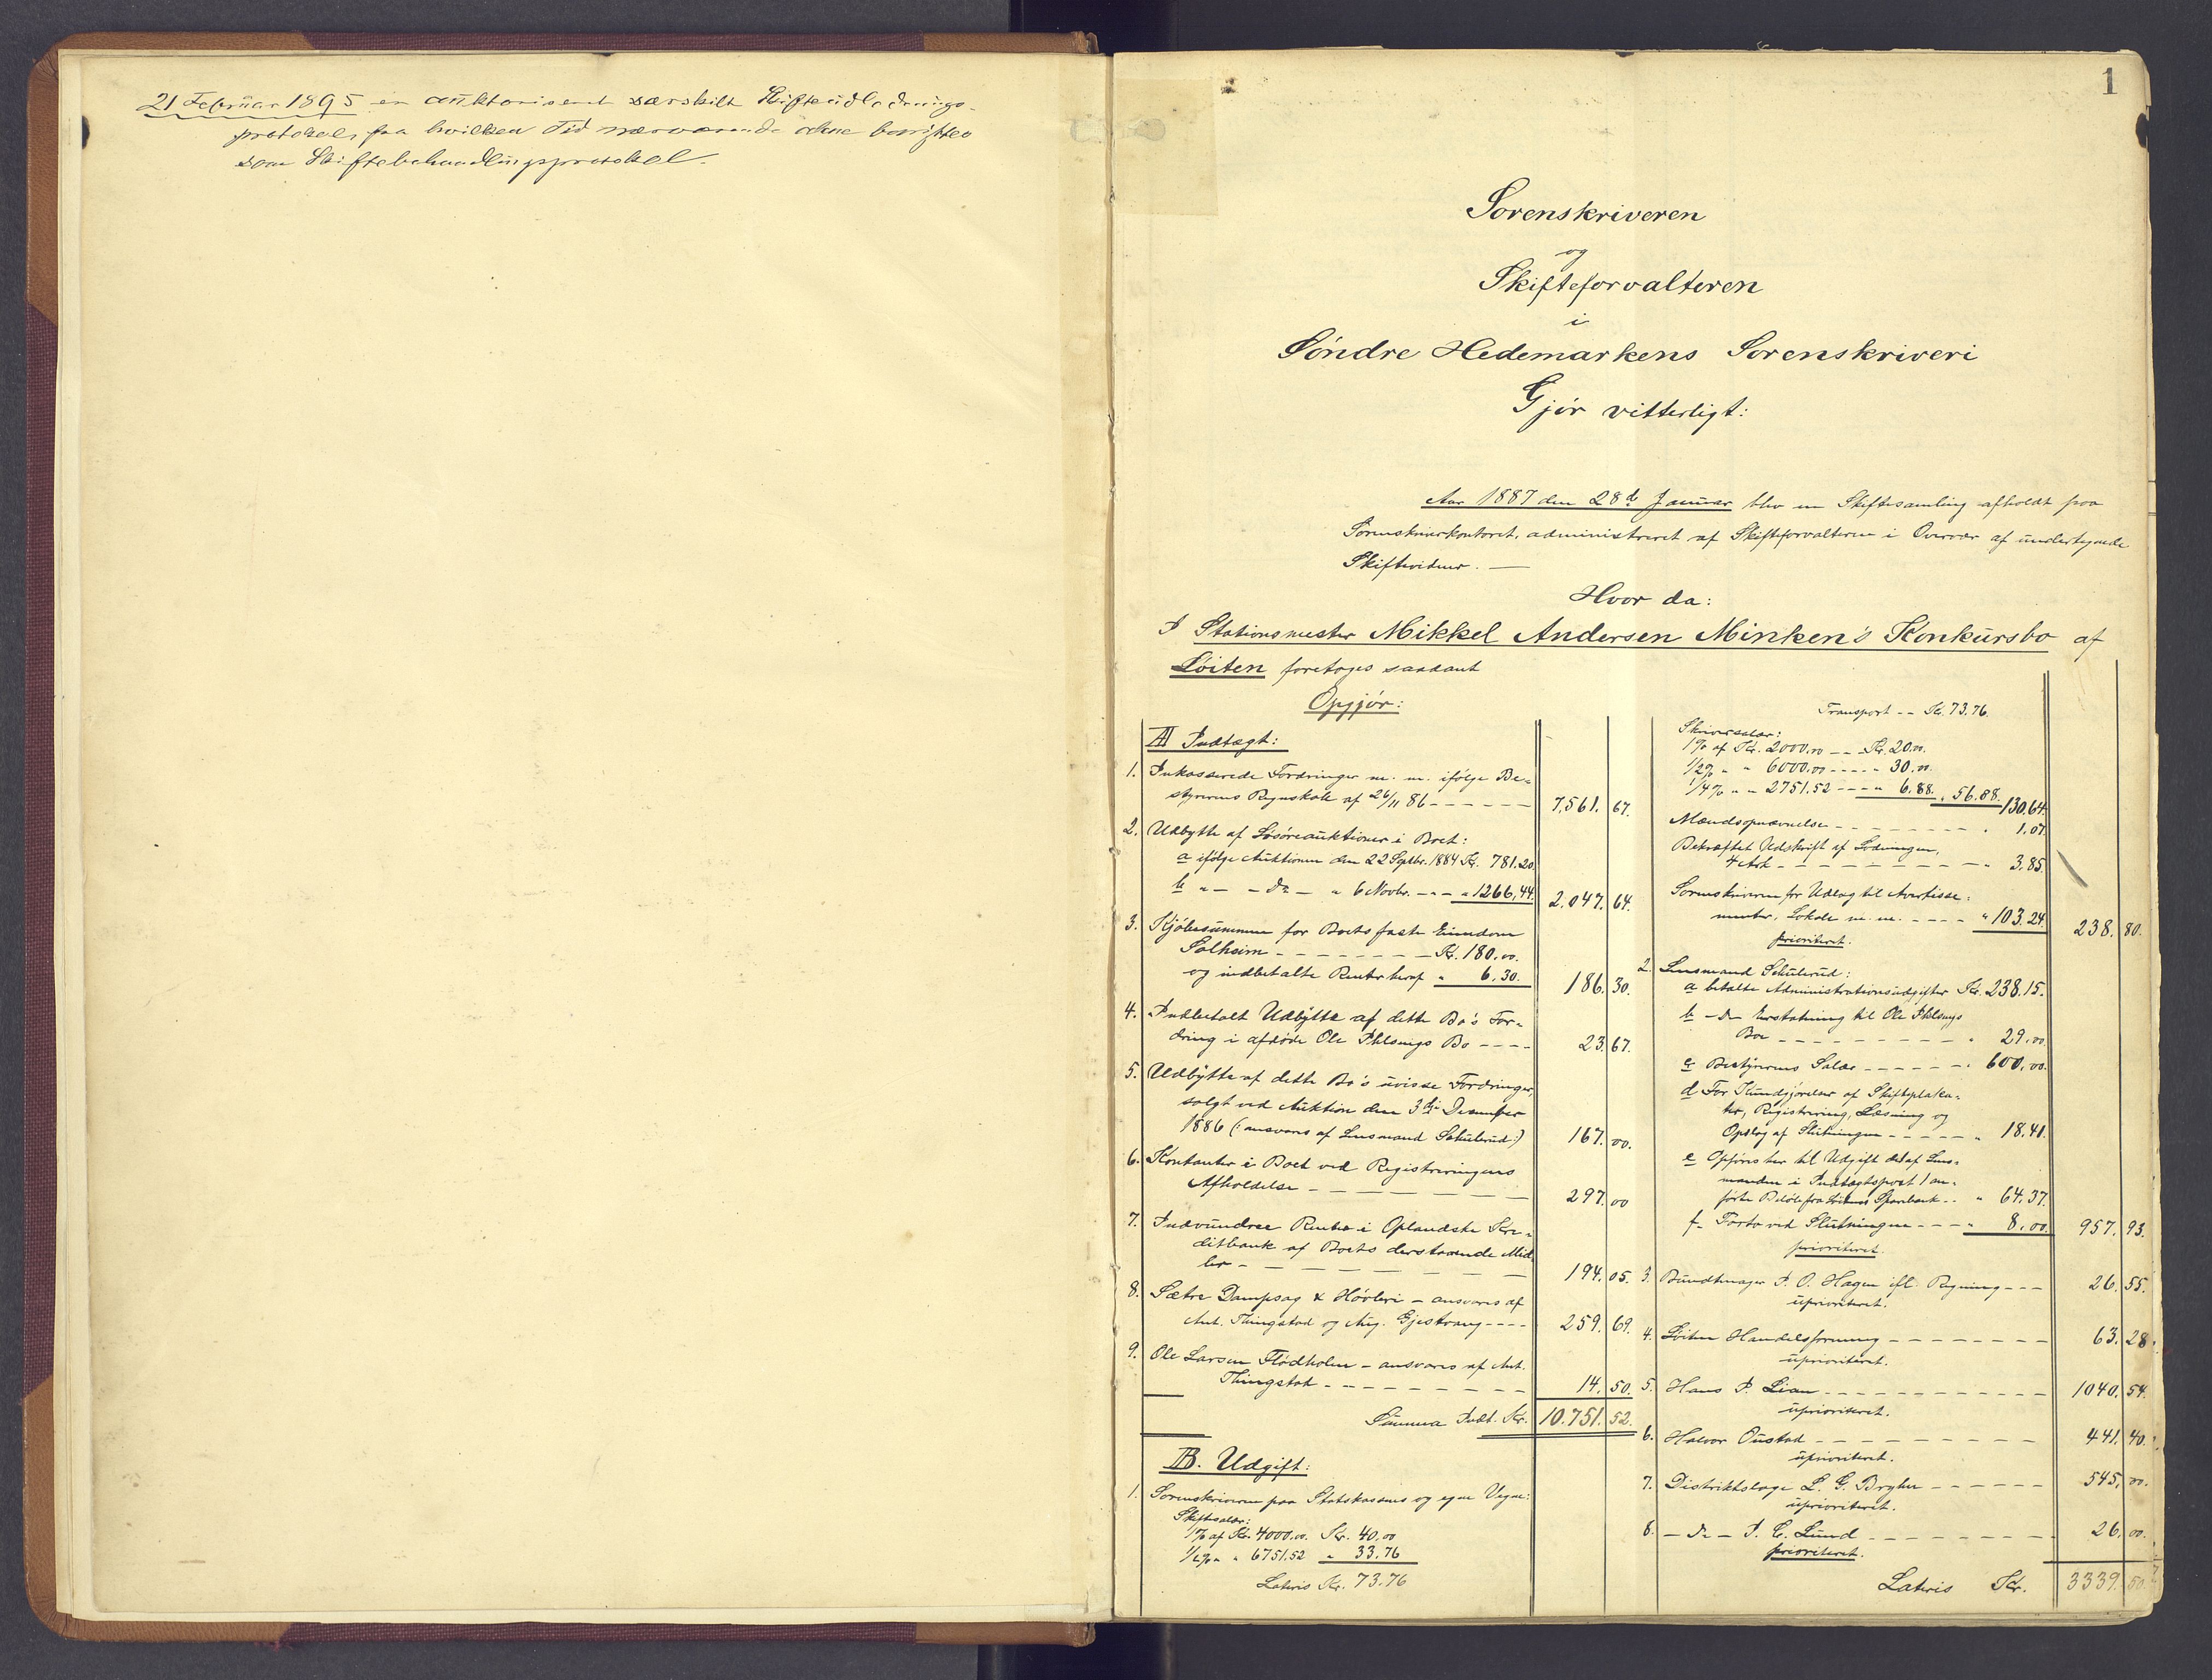 21 Februar 1895 er auktoriseret særskilt Skifteudlodnings-
protokol, fra hvilken Tid nærværende alene benyttes
som Skiftebehandlingsprotokol.
1
Sorenskriveren
og
Skifteforvalteren
i
Søndre Hedemarkens Sorenskriveri
Gjør vitterligt:
Aar 1887 den 28de Januar blev en Skiftesamling afholdt paa
Sorenskriverkontoret, administreret af Skifteforvalteren i Overvær af undertegnede
Skiftevidner. —
Hvor da:
I Stationsmester Mikkel Andersen Minken's Konkursbo af
Løiten foretoges saadant
Opgjør:
A Indtægt:
1. Inkasserede Fordringer m. m. ifølge Be-
styrerens Regnskab af 26/11 86 - - - - - - 7,561. 67.
2. Udbytte af Løsøreauktioner i Boet:
a ifølge Auktionen den 22 Septbr. 1884 Kr. 781.20
b " - - Do - " 6 Novbr. - - - " 1266,44. 2.047. 64.
3. Kjøbesummen for Boets faste Eiendom
Solheim - - - - - - - - Kr. 180.00.
og indbetalte Renter heraf " 6.30. 186. 30.
4. Indbetalt Udbytte af dette Bo's For-
dring i afdøde Ole Ihlsengs Bo - - - - 23. 67.
5. Udbytte af dette Bo's uvisse Fordringer,
solgt ved Auktion den 3die Desember
1886 (: ansvares af Lensmand Schulerud :) 167. 00.
6. Kontanter i Boet ved Registreringens
Afholdelse - - - - - - - - 297. 00
7. Indvundne Renter i Oplandske Kre-
ditbank af Boets derstaaende Mid-
ler - - - - - - - - 194. 05.
8. Sætre Dampsag & Høvleri - ansvares af
Ant. Thingstad og Aug. Gjestvang - - - - 259. 69.
9. Ole Larsen Flodholm - ansvares af Ant.
Thingstad - - - - - - - - 14. 50.
Summa Indt. Kr. 10.751. 52.
B. Udgift:
1. Sorenskriveren paa Statskassens og egne Vegne:
Skiftesalær:
1% af Kr. 4000.00. Kr. 40.00
1/2% " " 6751.52 " 33.76
Lateris Kr. 73.76
Transport - - Kr. 73.76.
Skriversalær:
1% af Kr. 2000.00 - - - Kr. 20.00.
1/2% " " 6000.00 - - - - " 30.00.
1/4% " " 2751.52 - - - " 6.88. " 56.88. 130.64.
Mændsopnævnelse - - - - - - - - " 1.07.
Bekræftet Udskrift af Lodningen,
4 Ark - - - - - - - - " 3.85.
Sorenskriveren for Udlæg til Avertisse-
menter, Lokale m. m. - - - - " 103.24. 238. 80.
prioriteret.
2. Lensmand Schulerud:
a betalte Administrationsudgifter Kr. 238.15.
b - Do Erstatning til Ole Ihlsengs
Bo - - - - - - - - " 29.00.
c Bestyrerens Salær - - - - - - " 600.00.
d For Kundgjørelser af Skifteplaka-
ter, Registrering, Læsning og
Opslag af Slutningen - - - - - " 18.41.
e Opføres her til Udgift det af Lens-
manden i Indtægtspost 1 an-
førte Beløb fra Løitens Sparebank - - " 64.37.
f. Porto ved Slutningen - - - - " 8.00. 957. 93.
prioriteret.
3. Bundtmager P. O. Hagen ifl. Regning - - - 26. 55.
uprioriteret.
4. Løiten Handelsforening - - - - - - - - 63. 28.
uprioriteret.
5. Hans P. Lian - - - - - - - - 1040. 54.
uprioriteret.
6. Halvor Oustad - - - - - - - - 441. 40.
uprioriteret.
7. Distriktslæge L. G. Bryhn - - - - - - 545. 00.
uprioriteret.
8. - Do - P. C. Lund - - - - - - - - 26. 00.
prioriteret.
Lateris Kr. 3339. 50.